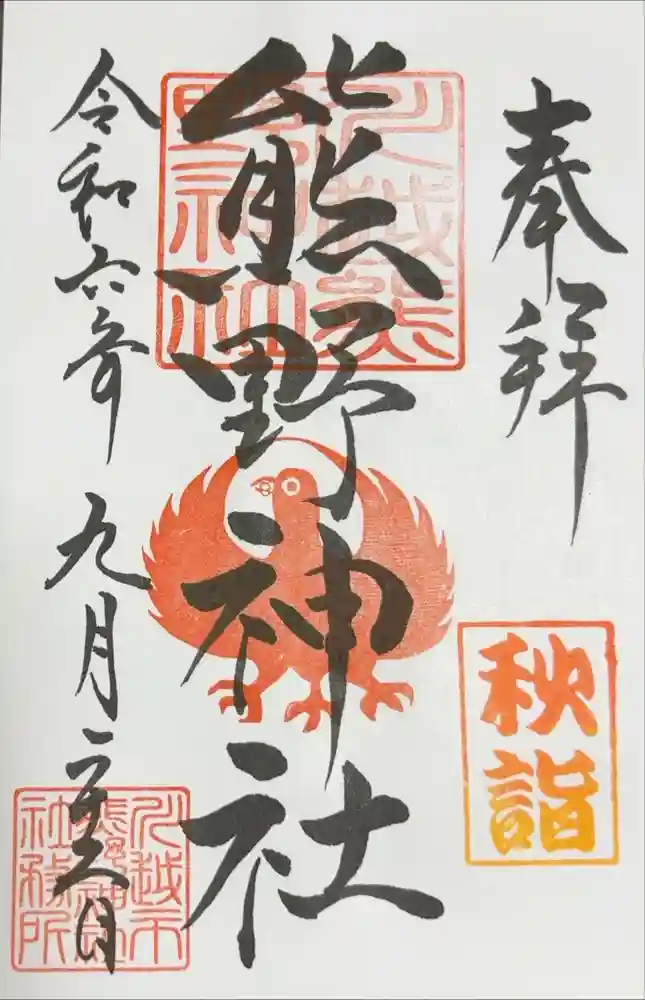 奉拝
秋詣
川越熊
野神社
熊野神社
令和六年 九月
川越市
熊野神社
社務所